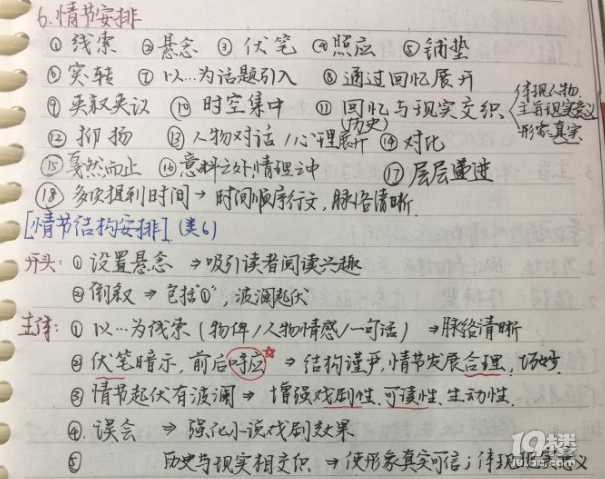 6.情节安排
① 线索 ② 悬念 ③ 伏笔 ④ 照应 ⑤ 铺垫
⑥ 突转 ⑦ 以…为话题引入 ⑧ 通过回忆展开
⑨ 夹叙夹议 ⑩ 时空集中 ⑪ 回忆与现实交织 体现人物
(历史) 主旨现实意义
形象真实
⑫ 抑扬 ⑬ 人物对话/心理展开 ⑭ 对比
⑮ 戛然而止 ⑯ 意料之外情理之中 ⑰ 层层递进
⑱ 多次提到时间 → 时间顺序行文,脉络清晰.
[情节结构安排] (类6)
开头: ① 设置悬念 ⇒ 吸引读者阅读兴趣
② 倒叙 ⇒ 包括"①",波澜起伏
主体: ① 以…为线索 (物件/人物情感/一句话) ⇒ 脉络清晰
② 伏笔暗示,前后呼应 ⇒ 结构谨严,情节发展合理,巧妙
③ 情节起伏有波澜 ⇒ 增强戏剧性、可读性、生动性.
④ 误会 ⇒ 强化小说戏剧效果
⑤ 历史与现实相交织 ⇒ 使形象真实可信;体现现实意义
19楼